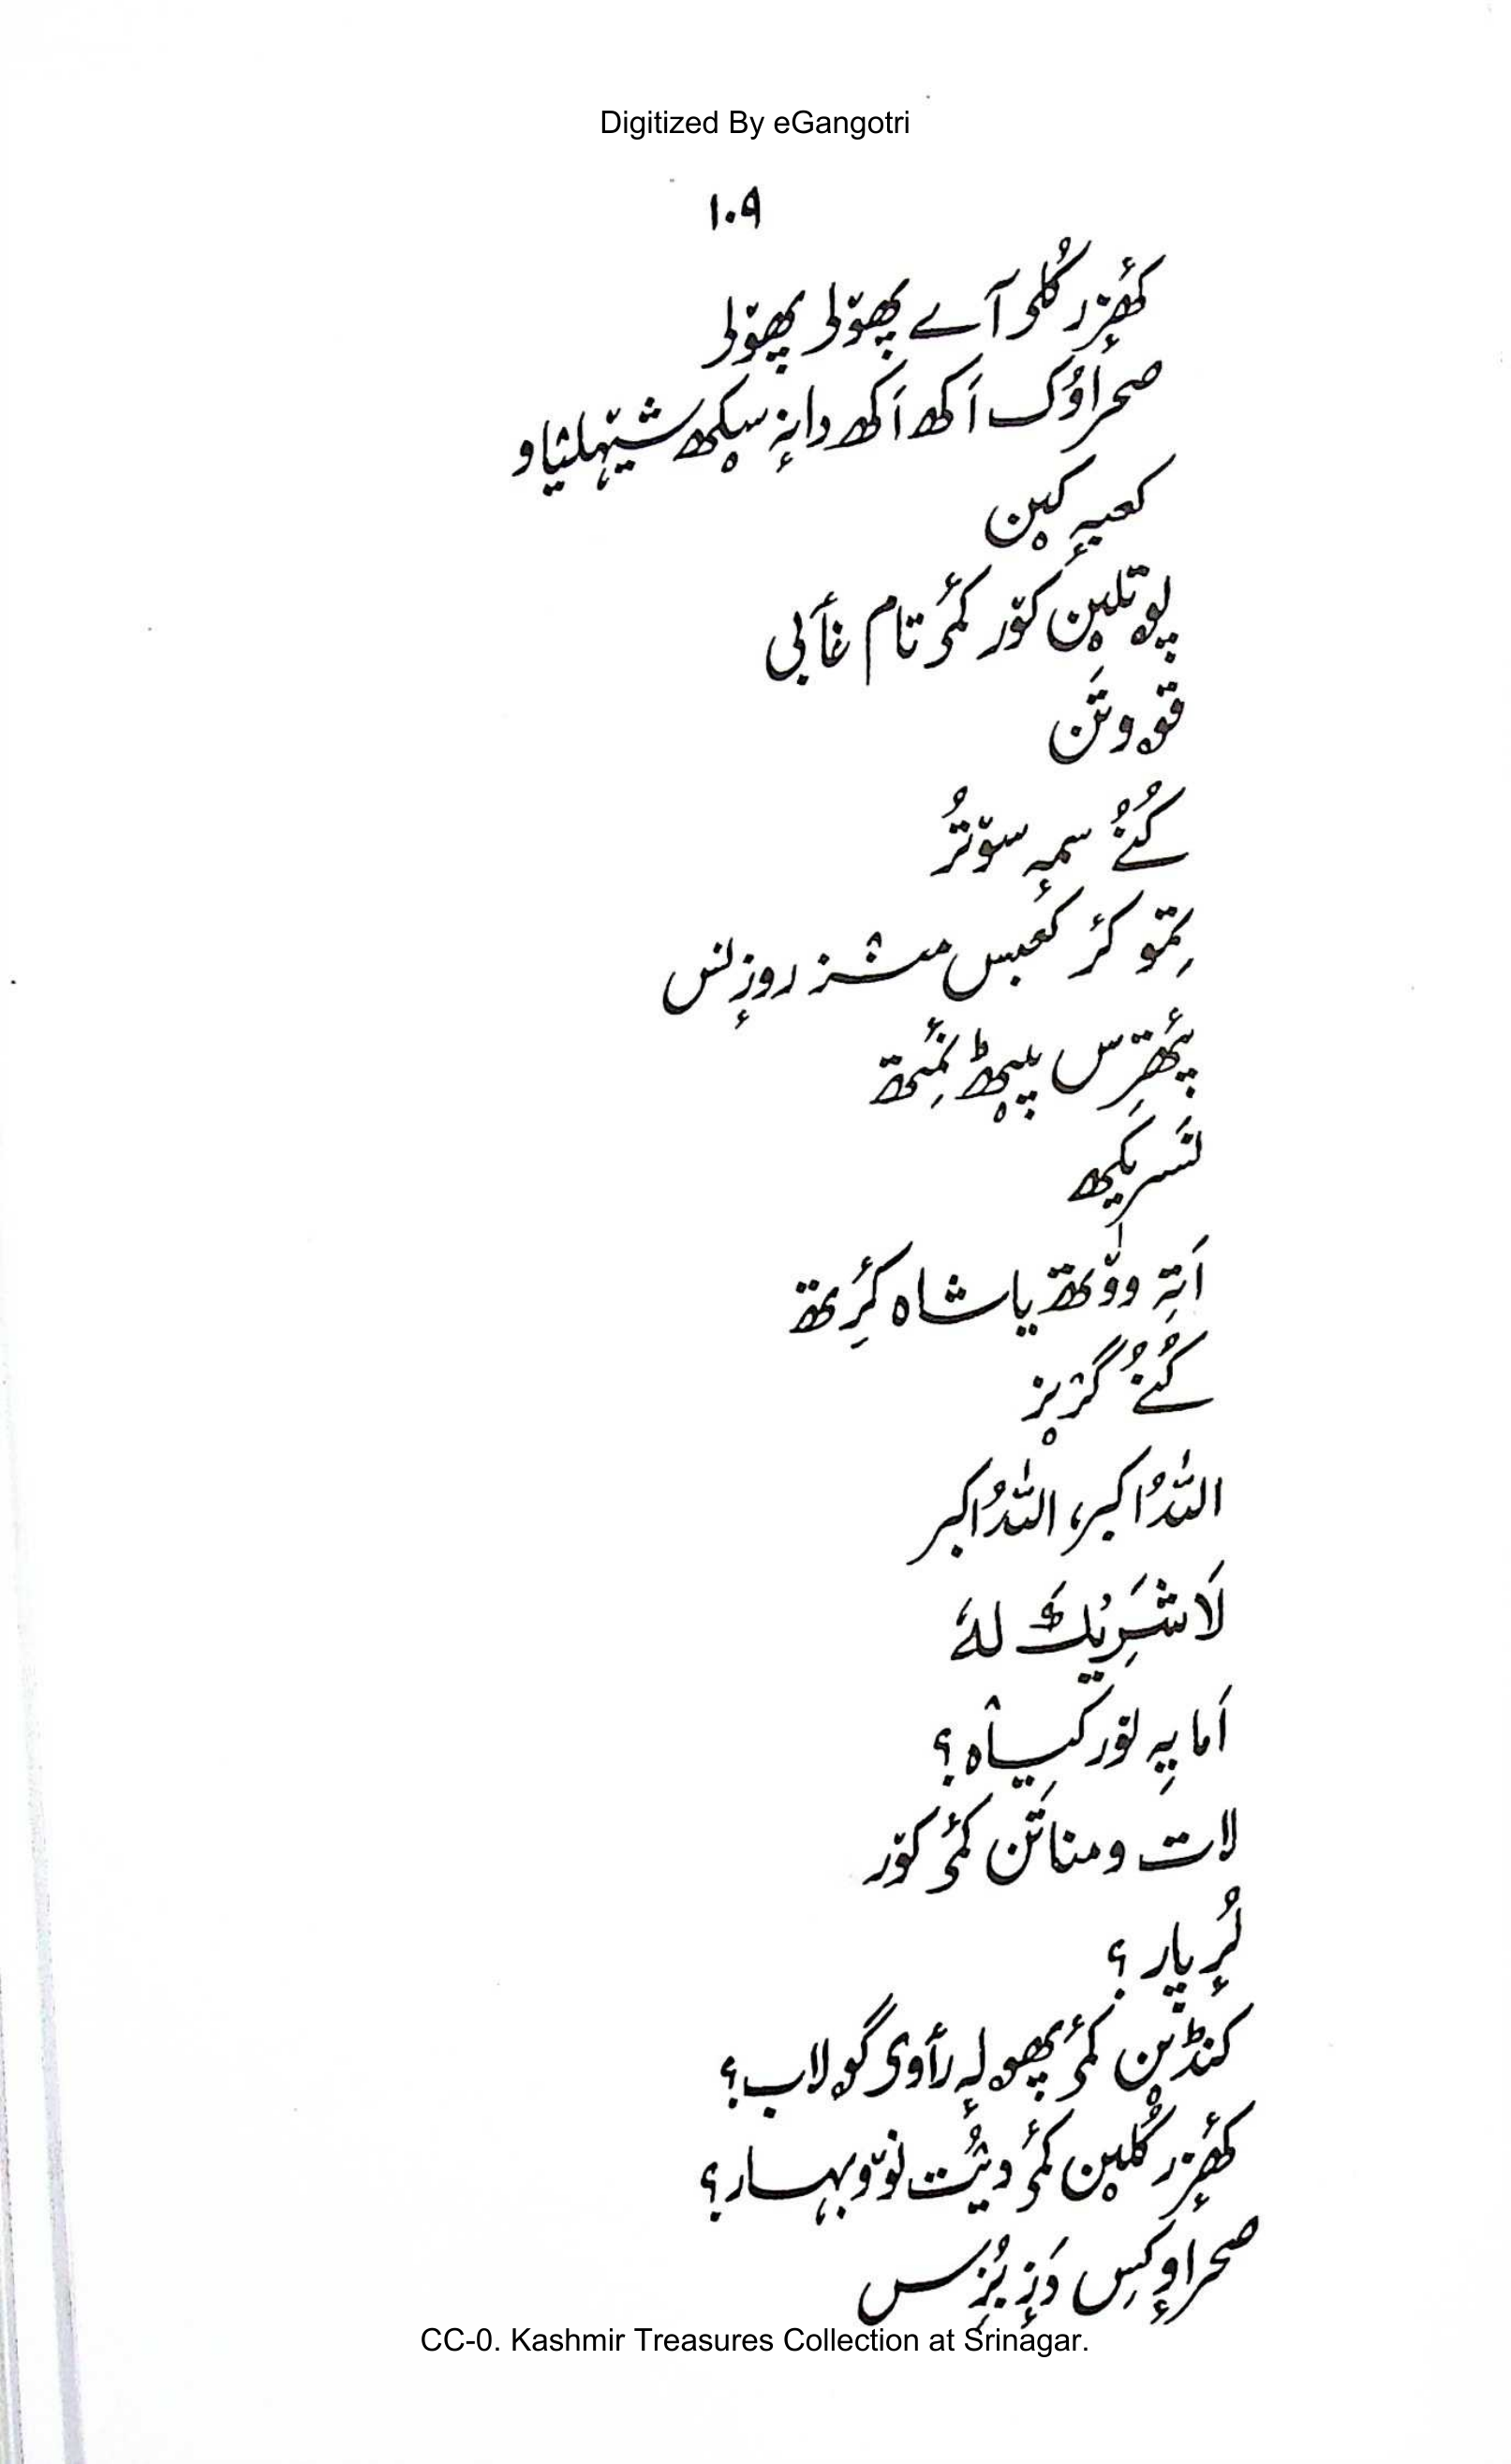 Digitized By eGangotri
۱۰۹
کھٔزٕر کُلؠ آے پھۆلؠ پھۆلؠ
صحرأوُک اَکھ اَکھ دانہٕ سؠکھ شیٚہلیٛاو
کعبہٕ کؠن
پوٚتلؠن کوٚر کمۍ تام غٲبی
قوہ وتَن
کُنُے سمہٕ سوٚتُر
تِمَو کر کعبس منٛز روزٕنس
پٔتھرِس پؠٹھ نٔمِتھ
نَسریکھ
اَتہِ ووٚتھ یا شاہ کٔرِتھ
کُنُے گرٛؠز
اللہُ اکبر، اللہُ اکبر
لَا شَرِیْکَ لہٗ
اَما یہِ نوٗر کیٛاہ؟
لات و مناتَن کمۍ کوٚر
لُرٕ پار؟
کنڈؠن کمۍ پھولہٕ رٲوی گولاب؟
کھٔزٕر کُلؠن کمۍ دیُٛت نوٚو بہار؟
صحراوٕکِس دَزٕ بُزِس
CC-0. Kashmir Treasures Collection at Srinagar.